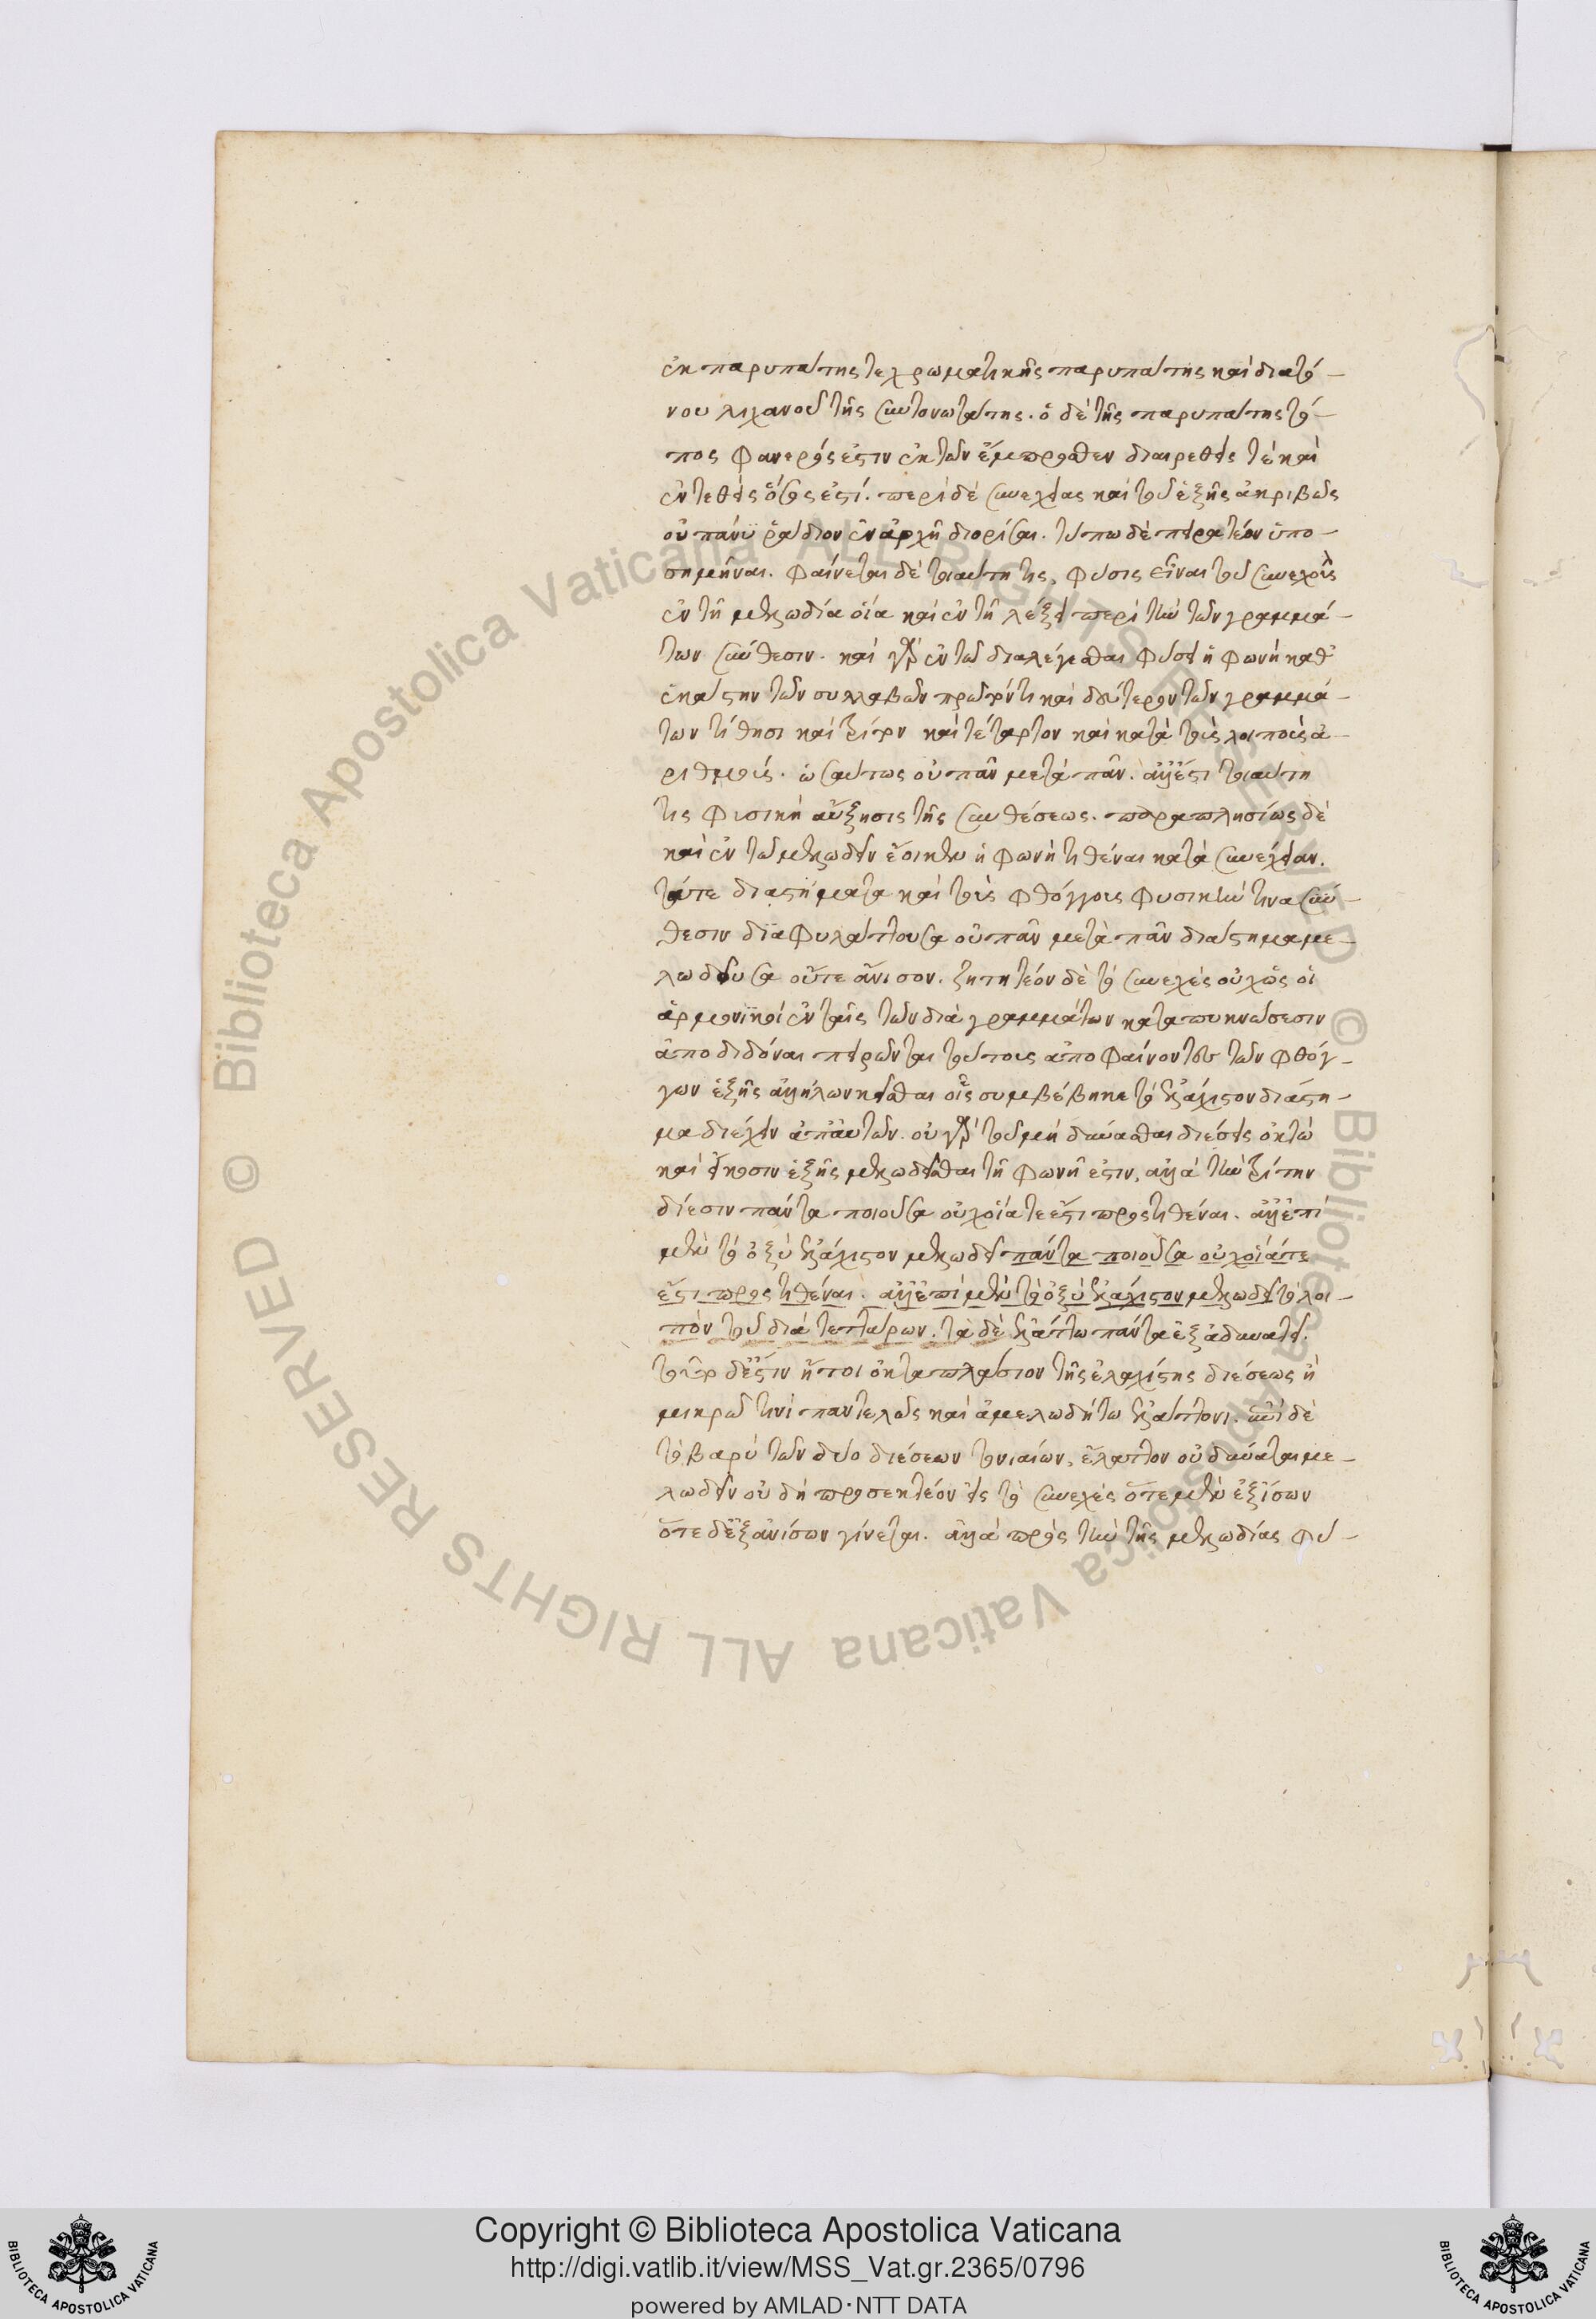 ἐκ παρυπάτης τε χρωματικῆς παρυπάτης καὶ διατό-
νου λιχανοῦ τῆς συντονωτάτης. ὁ δὲ τῆς παρυπάτης τό-
πος φανερός ἐστιν ἐκ τῶν ἔμπροσθεν διαιρεθείς τέ καὶ
ἐντεθείς ὅσος ἐστί. περὶ δὲ συνεχείας καὶ τοῦ ἑξῆς ἀκριβῶς
οὐ πάνυ ῥᾴδιον ἐν ἀρχῇ διορίσαι. τύπῳ δὲ πειρατέον ὑπο-
σημῆναι. φαίνεται δὲ τοιαύτη τις φύσις εἶναι τοῦ συνεχοῦς
ἐν τῇ μελῳδία οἵα καὶ ἐν τῇ λέξει περὶ τὴν τῶν γραμμά-
των σύνθεσιν. καὶ γὰρ ἐν τῶ διαλέγεσθαι φύσει ἡ φωνὴ καθ'
ἑκάστην τῶν συλλαβῶν πρῶτόν τι καὶ δεύτερον τῶν γραμμά-
των τίθησι καὶ τρίτον καὶ τέταρτον καὶ κατὰ τοὺς λοιποὺς ἀ-
ριθμούς. ὡσαύτως οὐ πᾶν μετὰ πᾶν. ἀλλ' ἔστι τοιαύτη
τις φυσικὴ αὔξησις τῆς συνθέσεως. παραπλησίως δὲ
καὶ ἐν τῶ μελῳδεῖν ἔοικεν ἡ φωνὴ τιθέναι κατὰ συνέχειαν.
τά τε διαστήματα καὶ τοὺς φθόγγους φυσικήν τινα σύν-
θεσιν διαφυλάττουσα οὐ πᾶν μετὰ πᾶν διάστημα με-
λωδοῦσα οὔτε ἄνισον. ζητητέον δὲ τὸ συνεχές οὐχ ὡς οἱ
ἁρμονικοί ἐν ταῖς τῶν διαγραμμάτων καταπυκνώσεσιν
ἀποδιδόναι πειρῶνται τούτους ἀποφαίνοντες τῶν φθόγ-
γων ἑξῆς ἀλλήλων κεῖσθαι οἷς συμβέβηκε τὸ ἐλάχιστον διάστη-
μα διέχειν ἀπ' αὐτῶν. οὐ γὰρ τοῦ μὴ δύνασθαι διέσεις ὀκτώ
καὶ εἴκοσιν ἑξῆς μελωδεῖσθαι τῇ φωνῇ ἐστιν, ἀλλὰ τὴν τρίτην
δίεσιν πάντα ποιοῦσα οὐχ οἵα τε ἐστι προςτιθέναι. ἀλλ' ἐπὶ
μὲν τὸ ὀξὺ ἐλάχιστον μελῳδεῖ πάντα ποιοῦσα οὐχ οἵα τε
ἐστι προςτιθέναι. ἀλλ' ἐπὶ μὲν τὸ ὀξὺ ἐλάχιστον μελῳδεῖ τὸ λοι-
πὸν τοῦ διὰ τεττάρων. τὰ δὲ ἐλάττω πάντα ἐξαδυνατεῖ.
τοῦτο δ' ἔστιν ἤτοι ὀκταπλάσιον τῆς ἐλαχίστης διέσεως ἢ
μικρῶ τινὶ παντελῶς καὶ ἀμελωδήτω ἐλάττονι. ἐπὶ δὲ
τὸ βαρὺ τῶν δύο διέσεων τονιαίων, ἔλαττον οὐ δύναται με-
λωδεῖν οὐ δὴ προσεκτέον εἰς τὸ συνεχές ὅτε μὲν ἐξ ἴσων
ὅτε δ' ἐξ ἀνίσων γίνεται. ἀλλὰ πρὸς τὴν τῆς μελῳδίας φύ-
Copyright © Biblioteca Apostolica Vaticana
http://digi.vatlib.it/view/MSS_Vat.gr.2365/0796
powered by AMLAD·NTT DATA